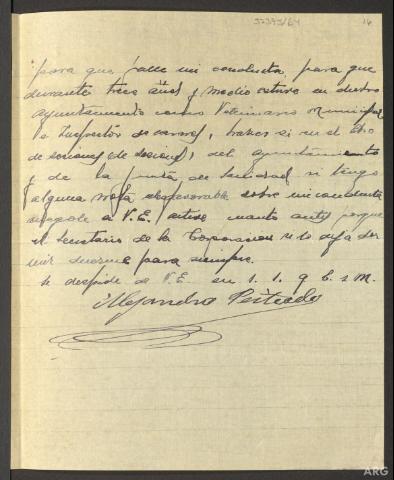 52373/64
16
para que falle mi conducta, para que
durante trece años y medio estuve en dicho
ayuntamiento como Veterinario Municipal
e Inspector de carnes, si en el libro
de sesiones de sesiones, del ayuntamiento
y de la junta de Sanidad si tengo
alguna nota desfavorable sobre mi conducta
a V.E. active cuanto antes porque
el Secretario de la Corporacion si lo deja dor
mir duerme para siempre.
Se despide de V.E. su s. s. q b. s. m.
Alejandro
ARG